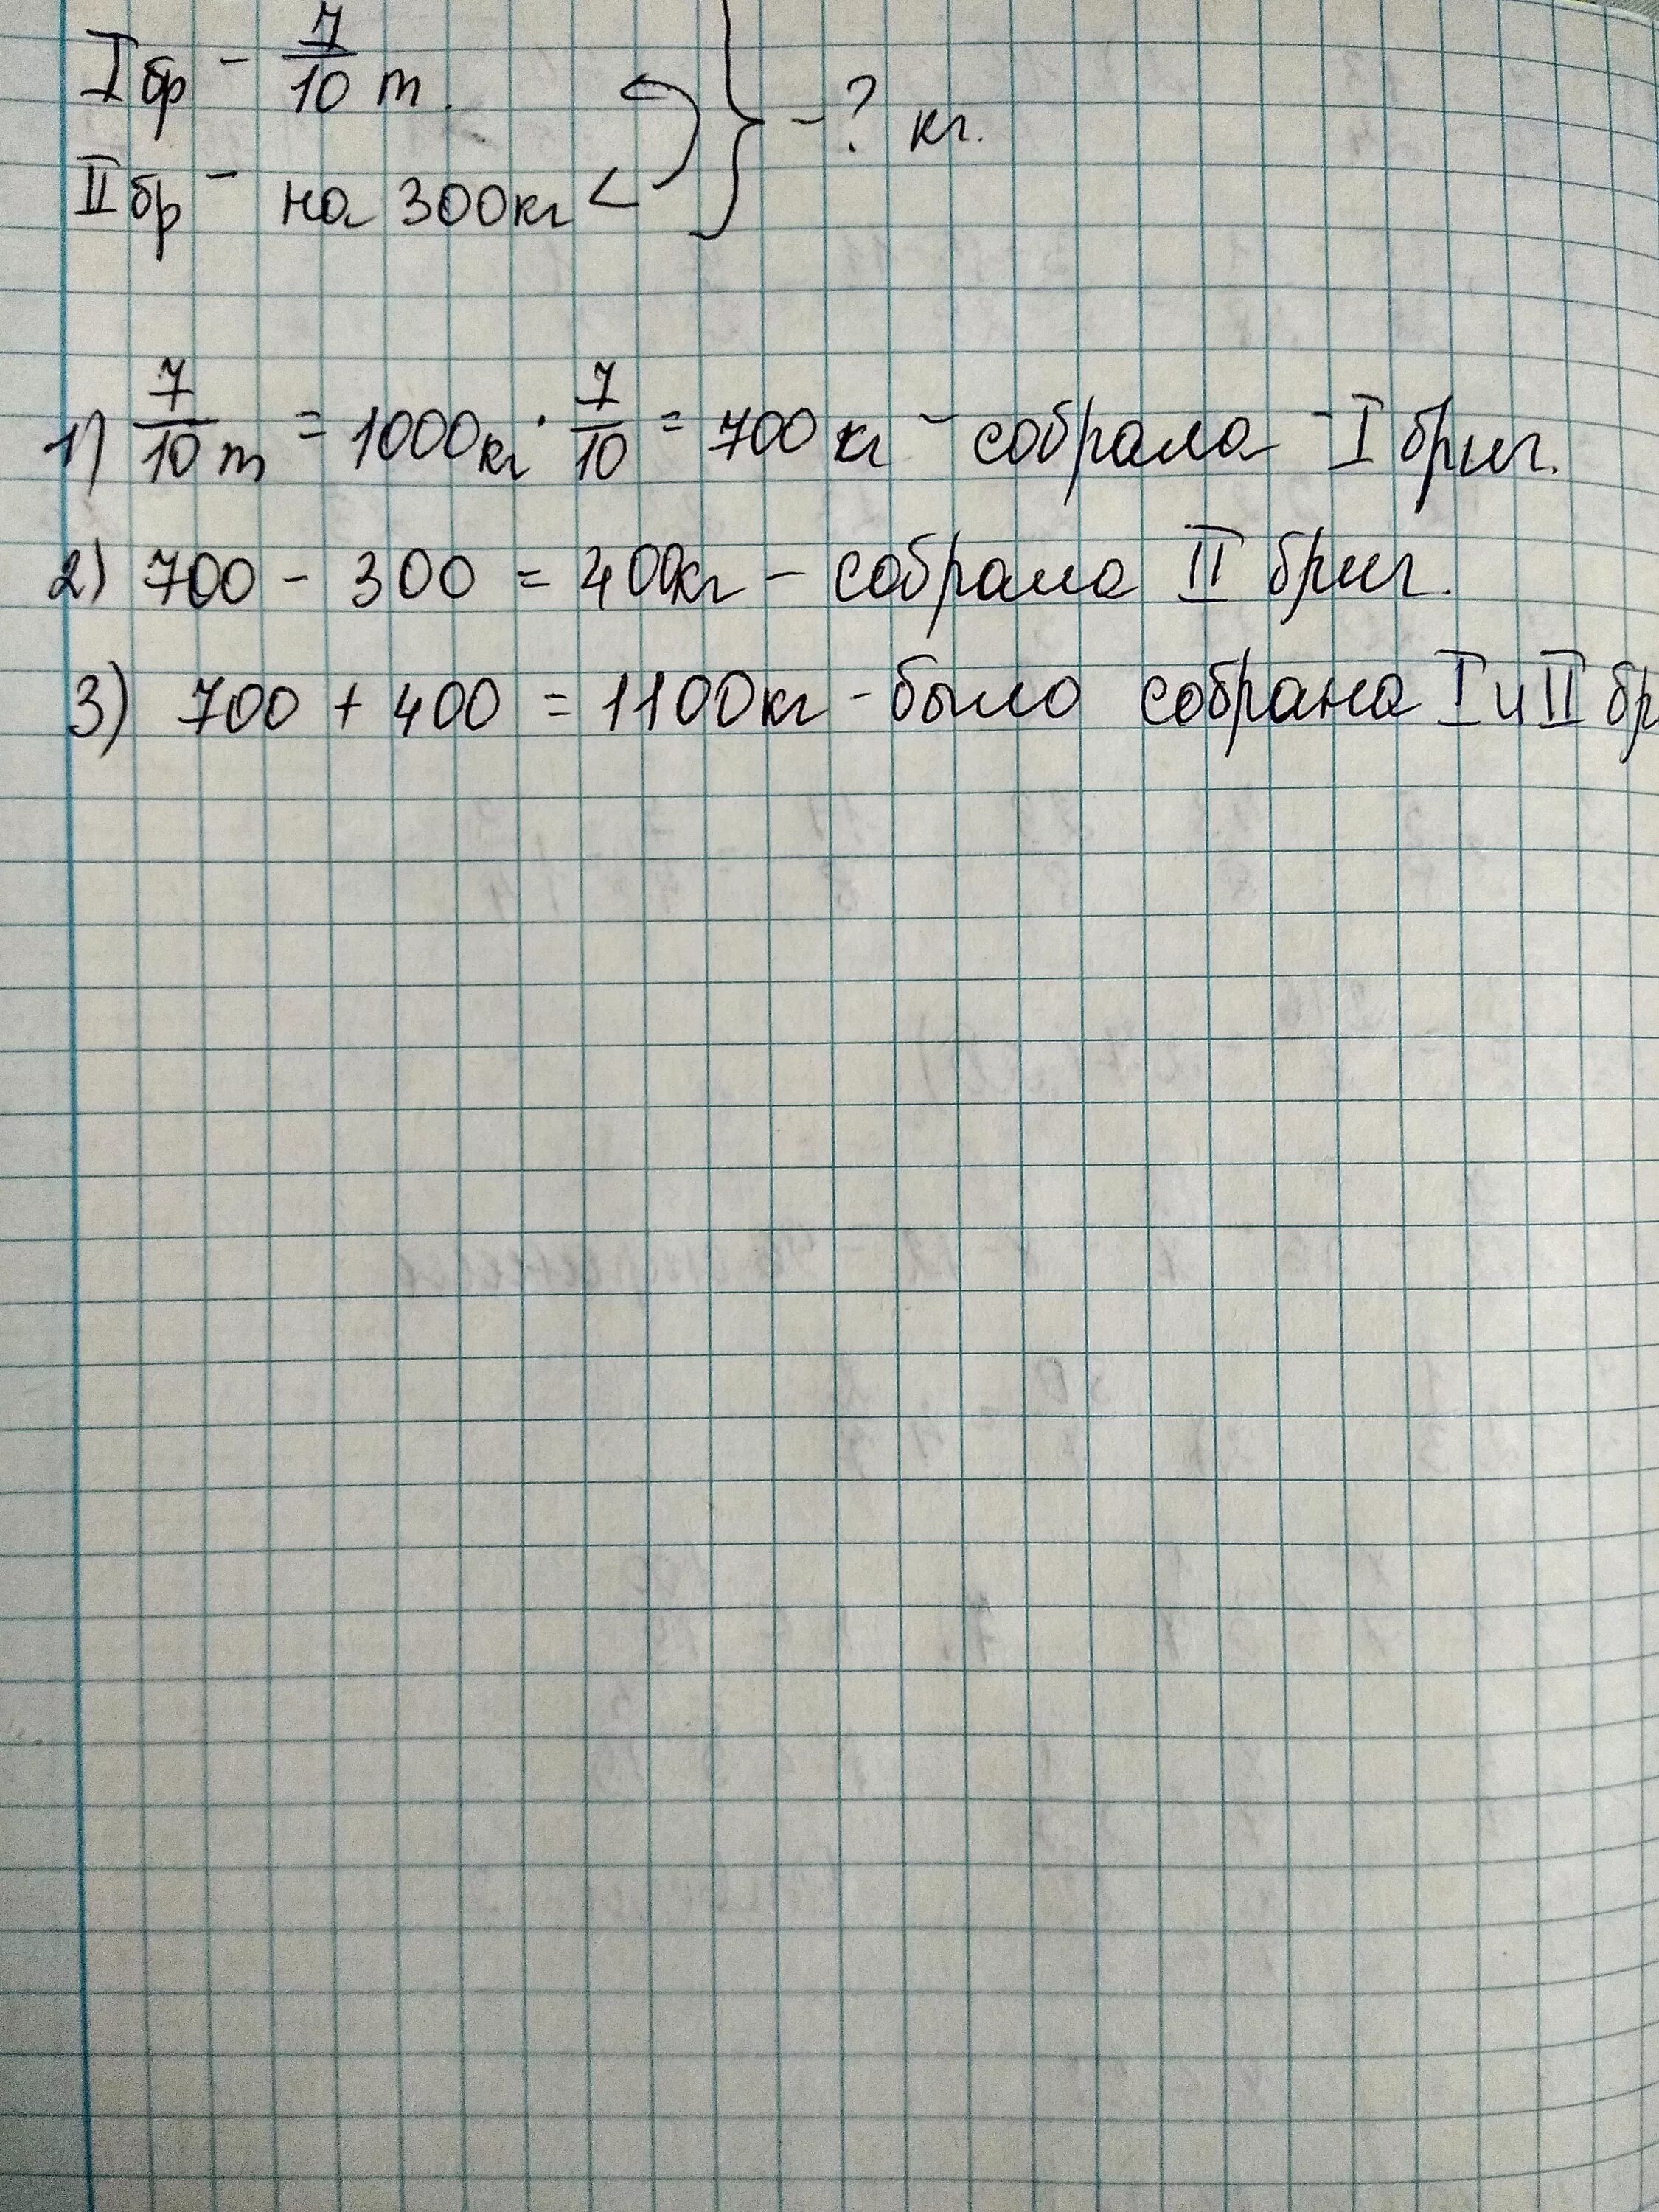 I бр - 7/10 т.
II бр - на 300кг <
} - ? кг.
1) 7/10 т = 1000кг · 7/10 = 700 кг - собрала - I бриг.
2) 700 - 300 = 400кг - собрала II бриг.
3) 700 + 400 = 1100кг - было собрано I и II бр